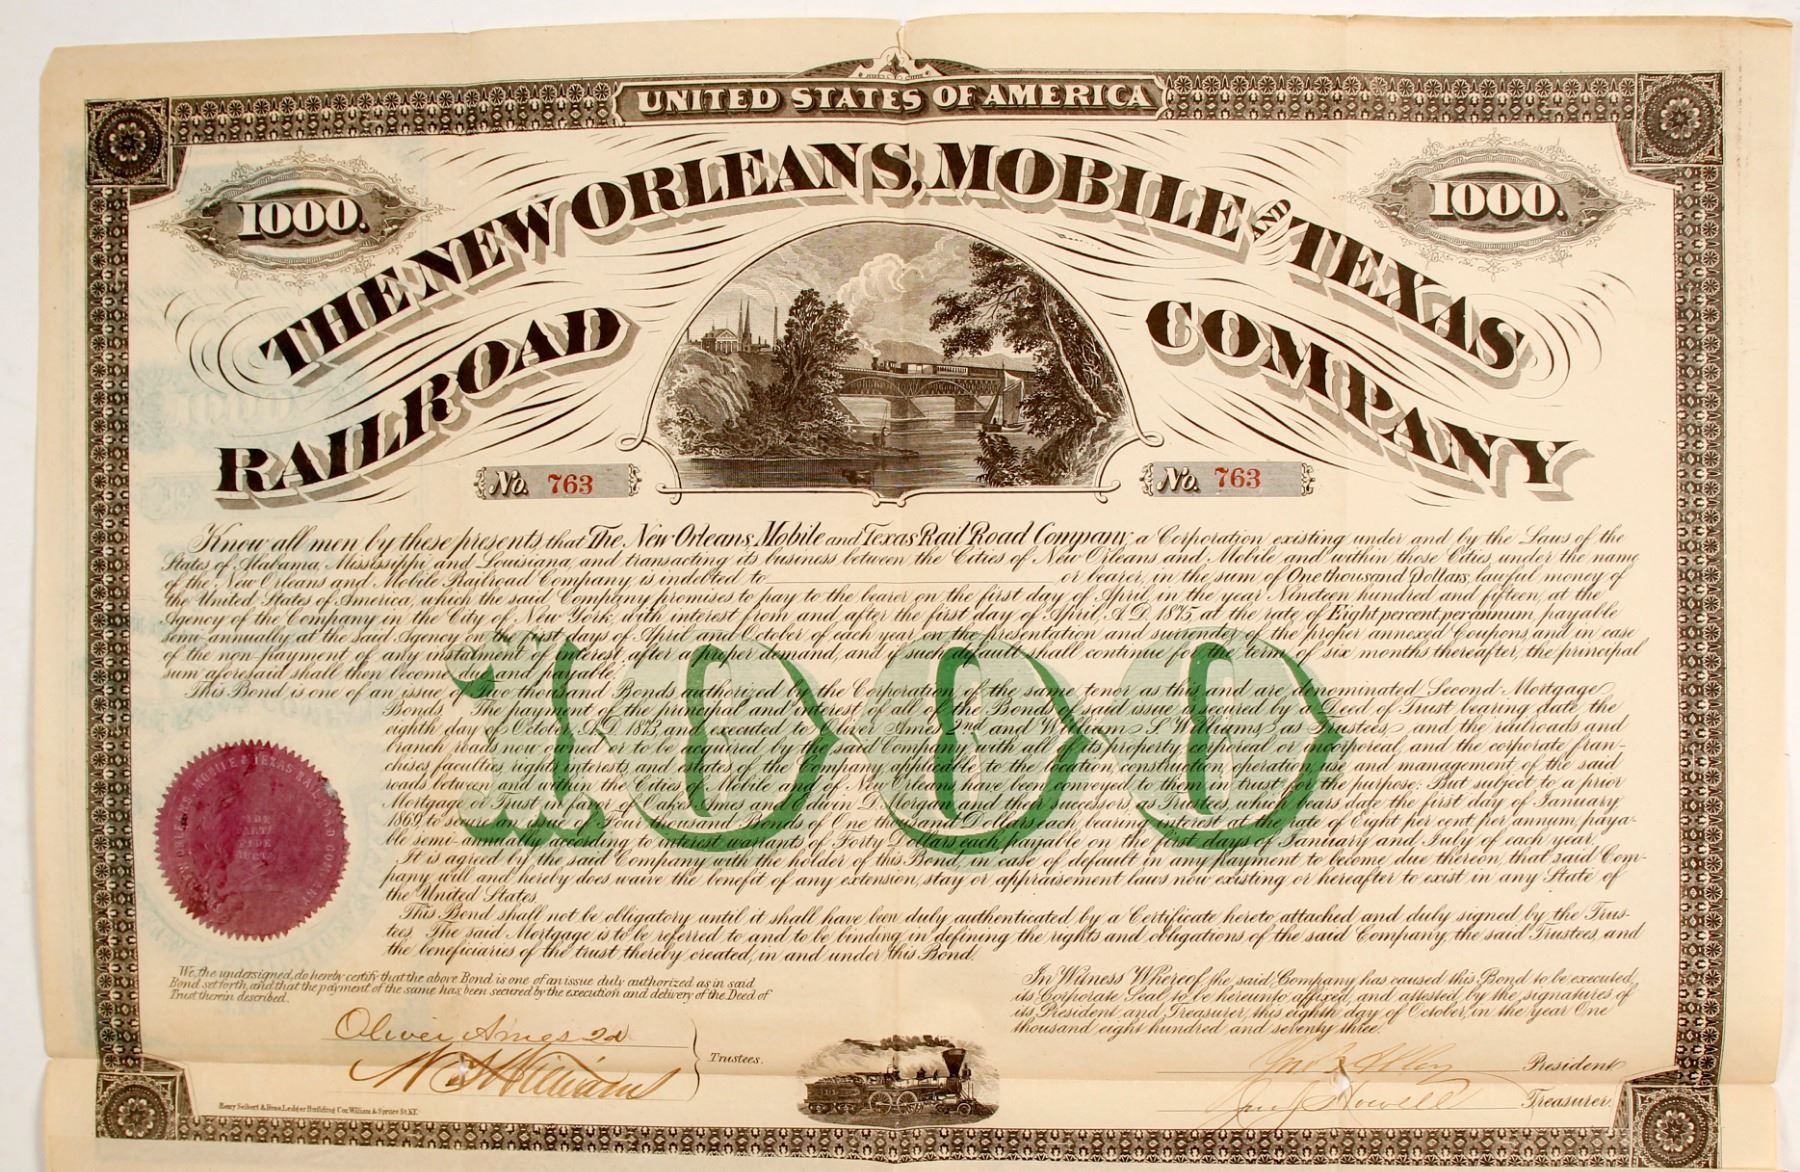 UNITED STATES OF AMERICA
1000.
1000.
THE NEW ORLEANS, MOBILE AND TEXAS
RAILROAD COMPANY
No. 763
No. 763
Know all men by these presents, that The New Orleans Mobile and Texas Rail Road Company, a Corporation existing under and by the Laws of the
States of Alabama, Mississippi and Louisiana, and transacting its business between the Cities of New Orleans and Mobile and within those Cities, under the name
of the New Orleans and Mobile Railroad Company, is indebted to or bearer, in the sum of One thousand Dollars, lawful money of
the United States of America, which the said Company promises to pay to the bearer on the first day of April, in the year Nineteen hundred and fifteen, at the
Agency of the Company in the City of New York, with interest from and after the first day of April, A.D. 1875, at the rate of Eight per cent per annum, payable
semi-annually at the said Agency on the first days of April and October of each year, on the presentation and surrender of the proper annexed Coupons, and in case
of the non-payment of any instalment of interest after a proper demand, and if such default shall continue for the term of six months thereafter, the principal
sum aforesaid shall then become due and payable.
This Bond is one of an issue of Two thousand Bonds authorized by the Corporation, of the same tenor as this, and are denominated Second Mortgage
Bonds. The payment of the principal and interest of all of the Bonds of said issue is secured by a Deed of Trust bearing date the
eighth day of October A.D. 1873, and executed to Oliver Ames 2nd and William S. Williams, as Trustees, and the railroads and
branch roads now owned or to be acquired by the said Company, with all of its property corporeal or incorporeal, and the corporate fran-
chises, faculties, rights, interests, and estates of the Company, applicable to the location, construction, operation, use and management of the said
roads between and within the Cities of Mobile and of New Orleans have been conveyed to them in trust for the purpose: But subject to a prior
Mortgage or Trust in favor of Oakes Ames and Edwin D. Morgan and their successors, as Trustees, which bears date the first day of January
1869, to secure an issue of Four thousand Bonds of One thousand Dollars each, bearing interest at the rate of Eight per cent per annum, paya-
ble semi-annually according to interest warrants of Forty Dollars each, payable on the first days of January and July of each year.
It is agreed by the said Company with the holder of this Bond, in case of default in any payment to become due thereon, that said Com-
pany will and hereby does waive the benefit of any extension, stay or appraisement laws now existing or hereafter to exist in any State of
the United States.
This Bond shall not be obligatory until it shall have been duly authenticated by a Certificate hereto attached and duly signed by the Trus-
tees. The said Mortgage is to be referred to and to be binding in defining the rights and obligations of the said Company, the said Trustees, and
the beneficiaries of the trust thereby created, in and under this Bond.
1000
MOBILE & TEXAS RAILROAD COMPANY
We, the undersigned, do hereby certify that the above Bond is one of an issue duly authorized as in said
Bond set forth, and that the payment of the same has been secured by the execution and delivery of the Deed of
Trust therein described.
In Witness Whereof, the said Company has caused this Bond to be executed,
its Corporate Seal to be hereunto affixed, and attested by the signatures of
its President and Treasurer, this eighth day of October, in the year One
thousand eight hundred and seventy three.
Oliver Ames 2d
W S Williams
Trustees.
President
Howell Treasurer.
Henry Seibert & Bros. Ledger Building Cor. William & Spruce St. N.Y.